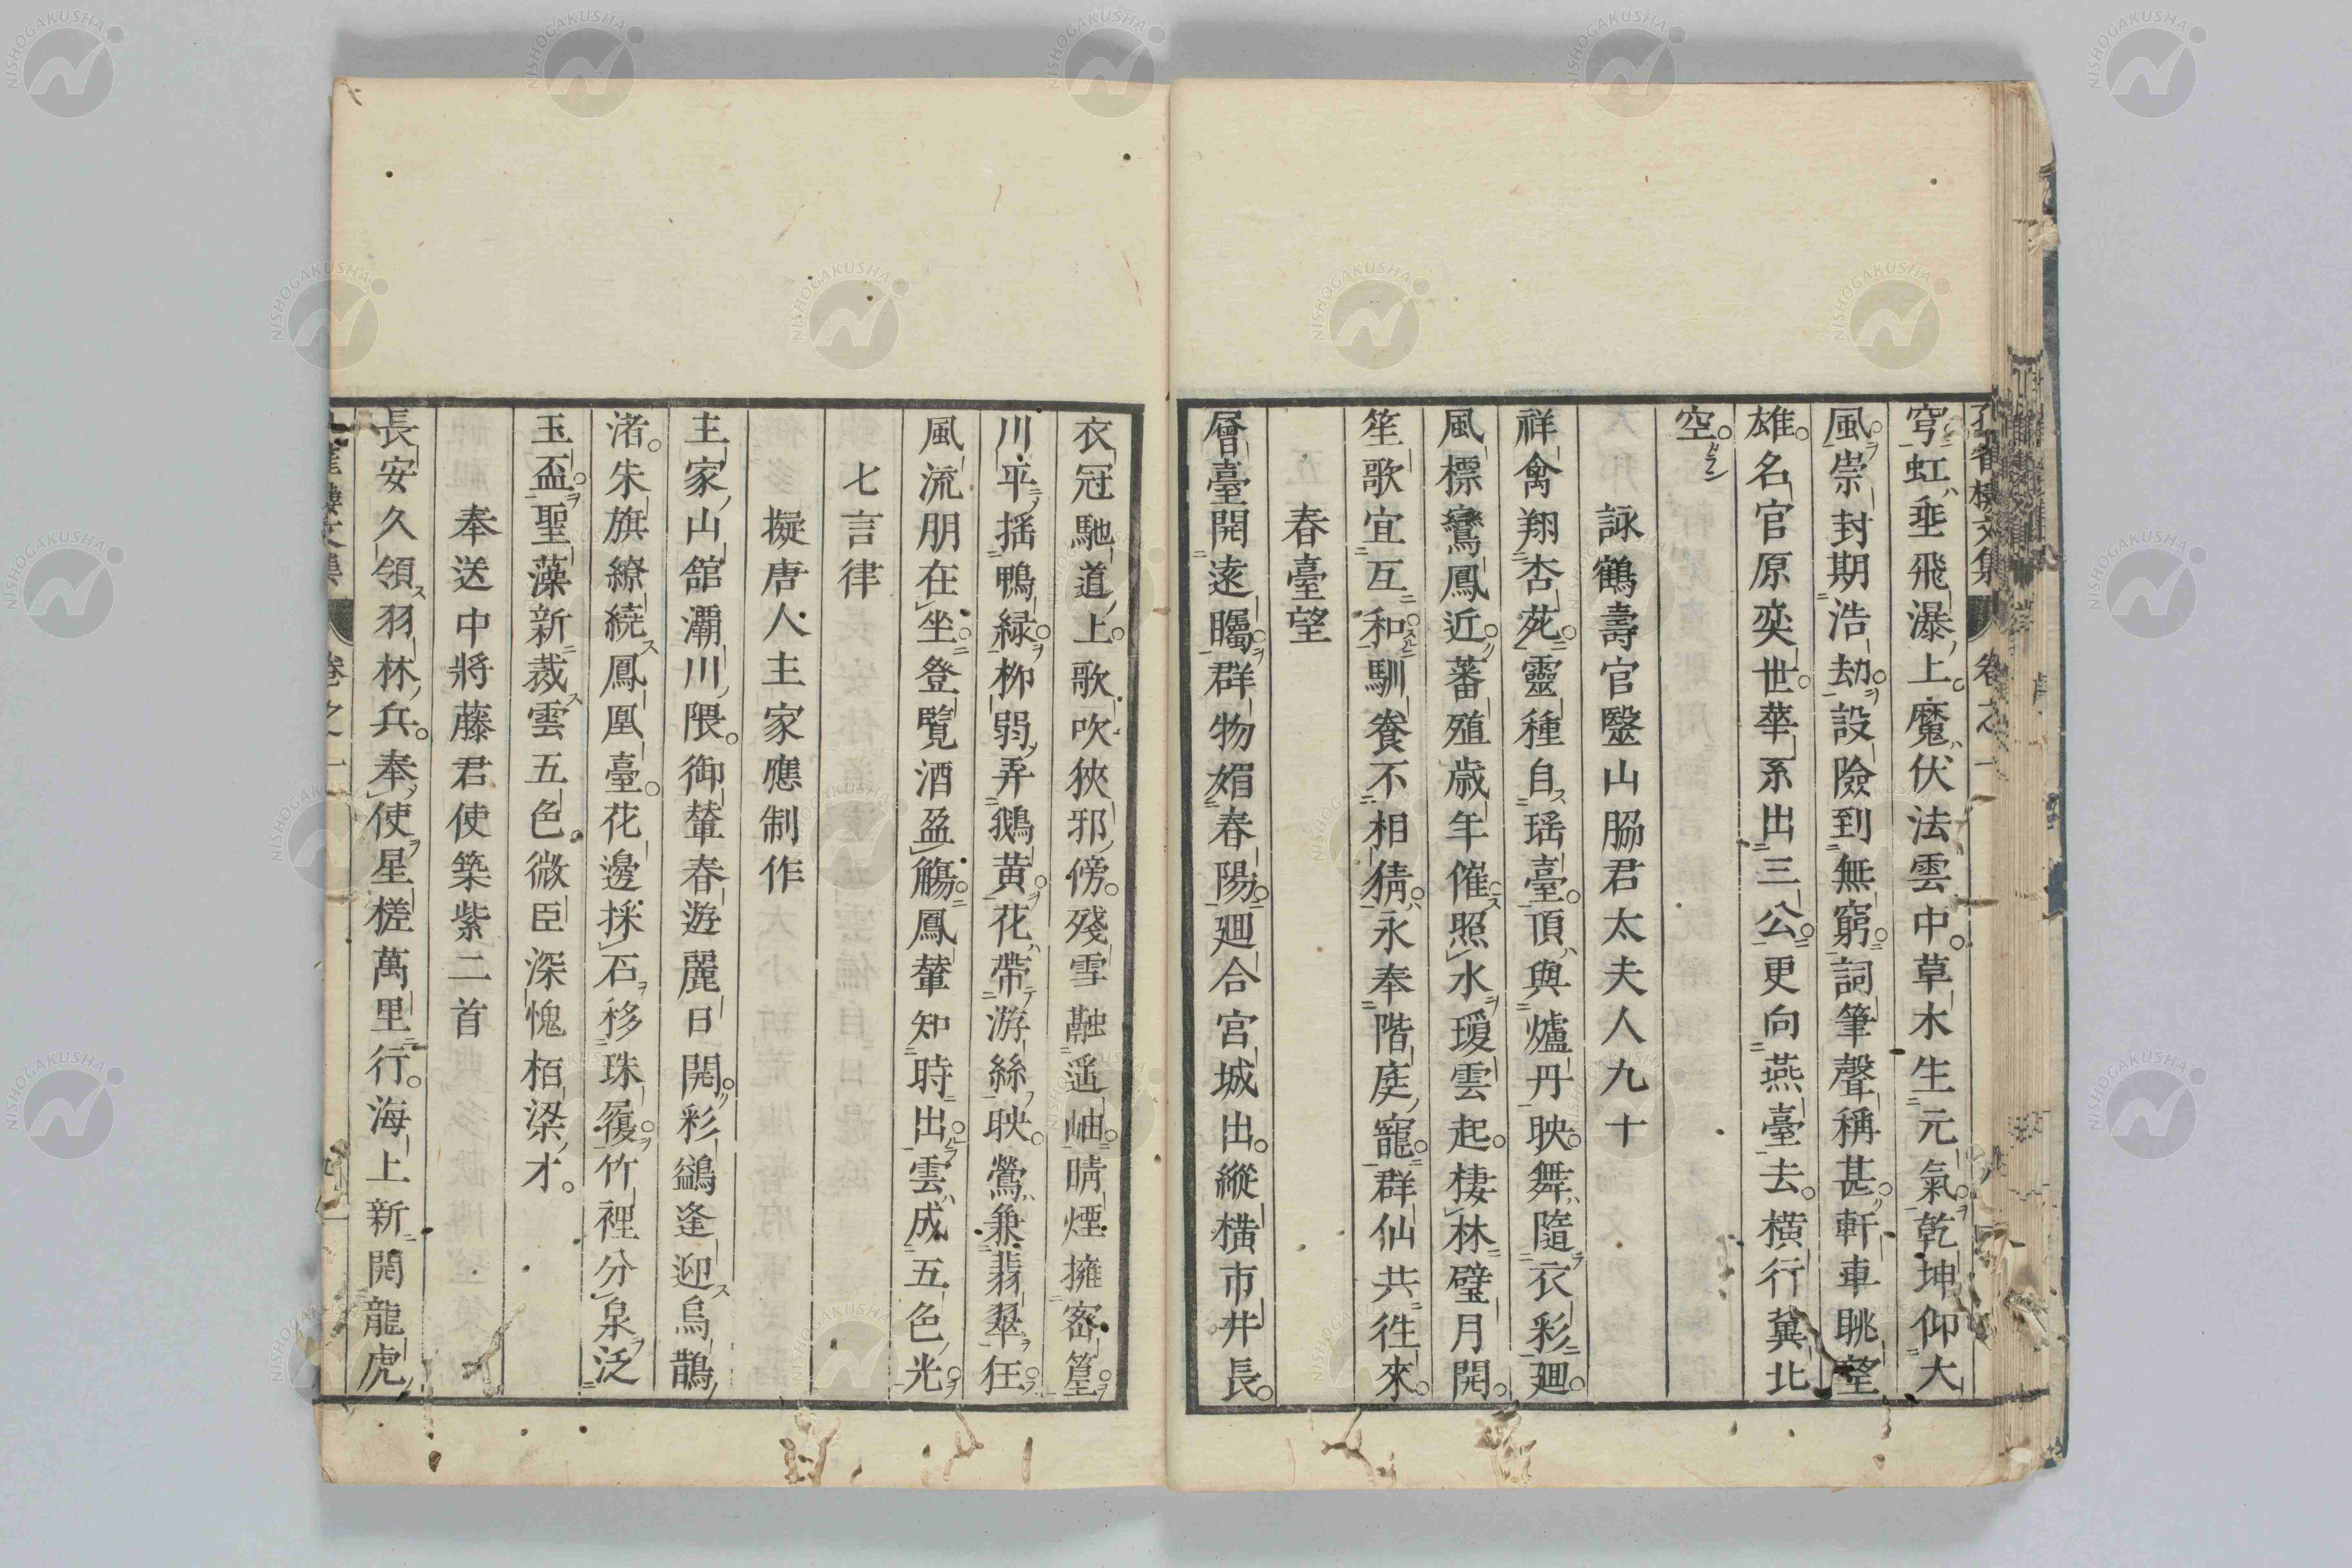 穹虹垂飛瀑上魔伏法雲中草木生元氣乾坤仰大
風崇封期浩劫設險到無窮詞筆聲稱甚軒車眺望
雄名官原奕世華系出三公更向燕臺去橫行冀北
空
詠鶴壽官醫山脇君太夫人九十
祥禽翔杏苑靈種自瑶臺頂與爐丹映舞隨衣彩廻
風標鸞鳳近蕃殖歲年催照水瑷雲起棲林璧月開
笙歌宜互和馴養不相猜永奉階庭寵群仙共徃來
春臺望
層臺開遠矚群物媚春陽廻合宮城出縱横市井長
衣冠馳道上歌吹狹邪傍殘雪融遥岫晴煙擁密篁
川平揺鴨緑柳弱弄鵝黄花帶游絲映鶯兼翡翠狂
風流朋在坐登覧酒盈觴鳳輦知時出雲成五色光
七言律
擬唐人主家應制作
主家山館灞川隈御輦春遊麗日開彩鷁逢迎烏鵲
渚朱旗繚繞鳳凰臺花邊採石移珠履竹裡分泉泛
玉盃聖藻新裁雲五色微臣深愧栢梁才
奉送中將藤君使築紫二首
長安久領羽林兵奉使星槎萬里行海上新開龍虎
卷之一
NISHOGAKUSHA